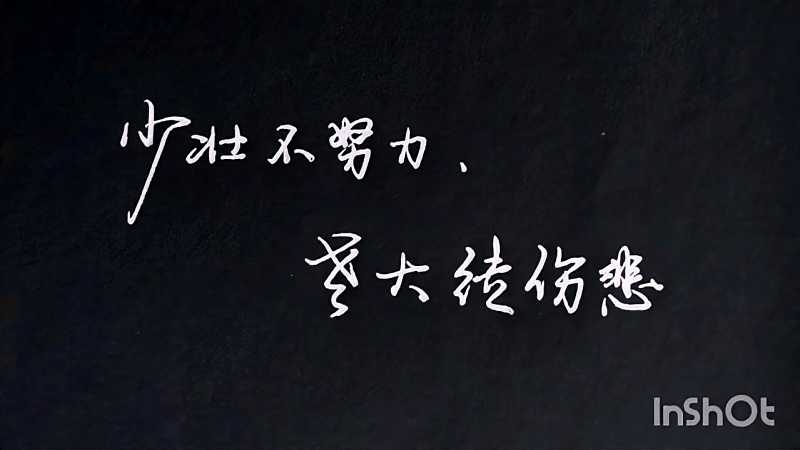 少壮不努力、
老大徒伤悲
InShOt